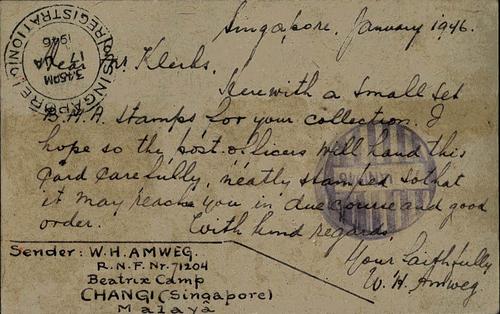 Singapore, January 1946.
SINGAPORE REGISTRATION
3.45PM
17 JA
1946
Dear Mr Klerks,
Herewith a small set
B.M.A. stamps for your collection. I
hope so the post-officers will hand this
card carefully, neatly stamped so that
it may reach you in due course and good
order. With kind regards,
Your faithfully
W. H. Amweg
Sender: W.H. AMWEG.
R.N.F. Nr. 71204
Beatrix Camp
CHANGI (Singapore)
Malaya